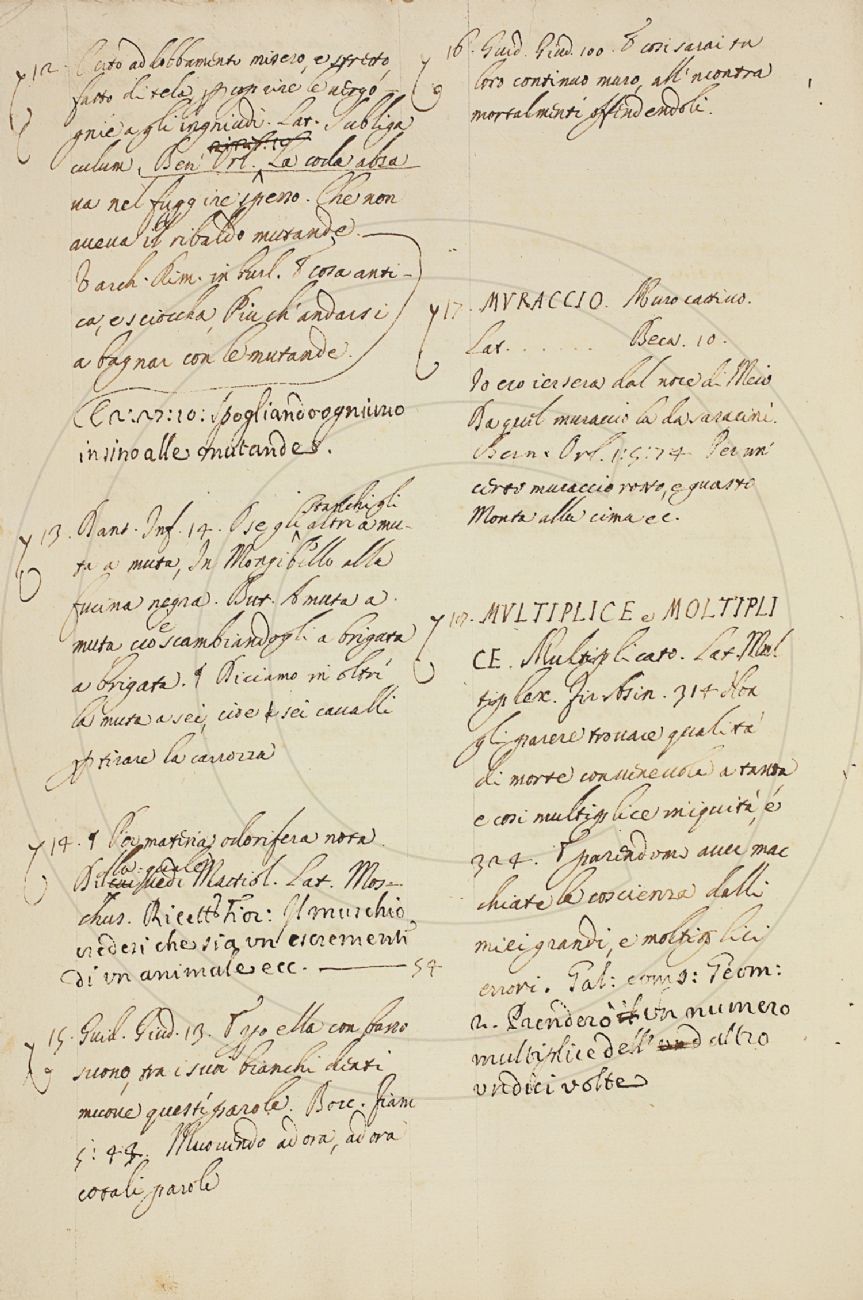 12. Certo abbobbamento misero, e stretto
fatto di tela p coprire le vergo-
gnie a gli ingniudi. Lat. Subliga
culum. Ben Orl. La coda alza
va nel fuggire spesso. Che non
aveva il ribaldo mutande.
Varch. Rim. in burl. E cosa anti-
ca, e sciocca, Più ch'andarsi
a bagnar con le mutande.
:10: spogliando ogniuno
insino alle mutande.
13. Dant. Inf. 14. O se gli stanchi gli altri a mu-
ta a muta, In Mongibello alla
fucina negra. But. A muta a
muta cioè scambiandogli a brigata
a brigata. ¶ Diciamo in oltre
la muta a sei, cioè sei cavalli
p tirare la carrozza
14. ¶ Per materia odorifera nota.
Della quale vedi Mattiol. Lat. Mos-
chus. Ricett: Fior: Il muschio
credesi che sia un escremento
di un animale ecc. 54
15. Guid. Giud. 13. ella con basso
suono, tra i suoi bianchi denti
muove queste parole. Bocc. Fiam
5: 43. Muovendo ad ora, ad ora
cotali parole
16. Guid. Giud. 100. E così sarai tu
loro continuo muro, all'incontra
mortalmenti offendendoli.
17. MVRACCIO. Muro cattivo.
Lat. . . . . . . Beca. 10.
Io ero iersera dal noce di Meio
Da quel muraccio là da Saracini.
Bern. Orl. 1:5:74 Per un
certo muraccio rotto, e guasto
Monta alla cima ec.
18. MVLTIPLICE e MOLTIPLI
CE. Multiplicato. Lat. Mul
tiplex. Fir. Asin. 314 Non
gli parere trovare qualità
di morte convenevole a tanta
e così multiplice iniquità, e
324. E parendomi aver mac
chiate le coscienza dalli
miei grandi, e moltiplici
errori. Gal: comp: Geom:
2. Prenderò un numero
multiplice dell' altro
undici volte